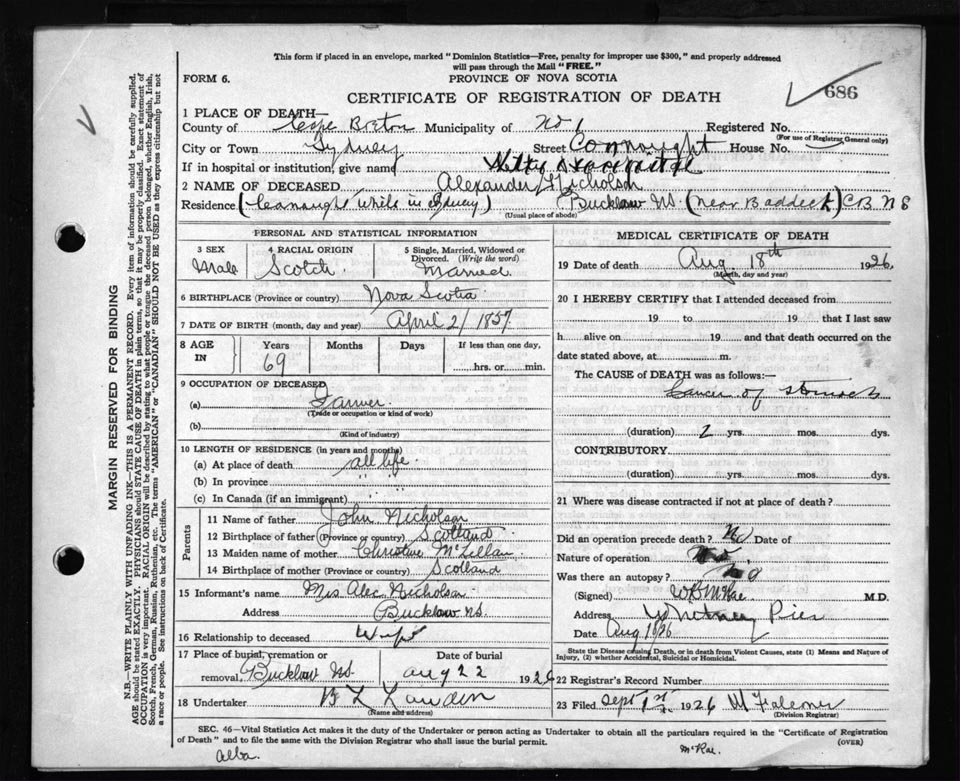 This form if placed in an envelope, marked "Dominion Statistics—Free, penalty for improper use $300," and properly addressed
will pass through the Mail "FREE."
FORM 6. PROVINCE OF NOVA SCOTIA
CERTIFICATE OF REGISTRATION OF DEATH 686
1 PLACE OF DEATH—
County of Cape Breton Municipality of No 1 Registered No.
(For use of Registrar General only)
City or Town Sydney Street Connaught House No.
If in hospital or institution, give name City Hospital
2 NAME OF DECEASED Alexander Nicholson
Residence (Connaught while in Sydney) Bucklaw NS (near Baddeck) CB NS
(Usual place of abode)
PERSONAL AND STATISTICAL INFORMATION
3 SEX Male
4 RACIAL ORIGIN Scotch
5 Single, Married, Widowed or Divorced. (Write the word) Married
6 BIRTHPLACE (Province or country) Nova Scotia
7 DATE OF BIRTH (month, day and year) April 2/1857
8 AGE IN Years Months Days If less than one day,
69 hrs. or min.
9 OCCUPATION OF DECEASED
(a) Farmer
(Trade or occupation or kind of work)
(b)
(Kind of industry)
10 LENGTH OF RESIDENCE (in years and months)
(a) At place of death all life
(b) In province " "
(c) In Canada (if an immigrant)
Parents
11 Name of father John Nicholson
12 Birthplace of father (Province or country) Scotland
13 Maiden name of mother Christine McLellan
14 Birthplace of mother (Province or country) Scotland
15 Informant's name Mrs Alec Nicholson
Address Bucklaw NS.
16 Relationship to deceased Wife
17 Place of burial, cremation or Date of burial
removal Bucklaw NS Aug 22 1926
18 Undertaker
(Name and address)
MEDICAL CERTIFICATE OF DEATH
19 Date of death Aug 18th 1926
(Month, day and year)
20 I HEREBY CERTIFY that I attended deceased from
19 to 19 that I last saw
h alive on 19 and that death occurred on the
date stated above, at m.
The CAUSE of DEATH was as follows:—
Cancer of stomach
(duration) 2 yrs. mos. dys.
CONTRIBUTORY
(duration) yrs. mos. dys.
21 Where was disease contracted if not at place of death?
Did an operation precede death? No Date of
Nature of operation
Was there an autopsy? No
(Signed) McRae M.D.
Address Whitney Pier
Date Aug 1926
State the Disease causing Death, or in death from Violent Causes, state (1) Means and Nature of
Injury, (2) whether Accidental, Suicidal or Homicidal.
22 Registrar's Record Number
23 Filed Sept 1st 1926 Falconer
(Division Registrar)
SEC. 46—Vital Statistics Act makes it the duty of the Undertaker or person acting as Undertaker to obtain all the particulars required in the "Certificate of Registration
of Death" and to file the same with the Division Registrar who shall issue the burial permit. (OVER)
Alba. McRae.
MARGIN RESERVED FOR BINDING
N.B.—WRITE PLAINLY WITH UNFADING INK—THIS IS A PERMANENT RECORD. Every item of information should be carefully supplied.
AGE should be stated EXACTLY. PHYSICIANS should STATE CAUSE OF DEATH in plain terms, so that it may be properly classified. Exact statement of
OCCUPATION is very important. RACIAL ORIGIN will be described by stating to what people or tongue the deceased person belonged, whether English, Irish,
Scotch, French, German, Russian, Ruthenian, etc. The terms "AMERICAN" or "CANADIAN" SHOULD NOT BE USED as they express citizenship but not
a race or people. See instructions on back of Certificate.